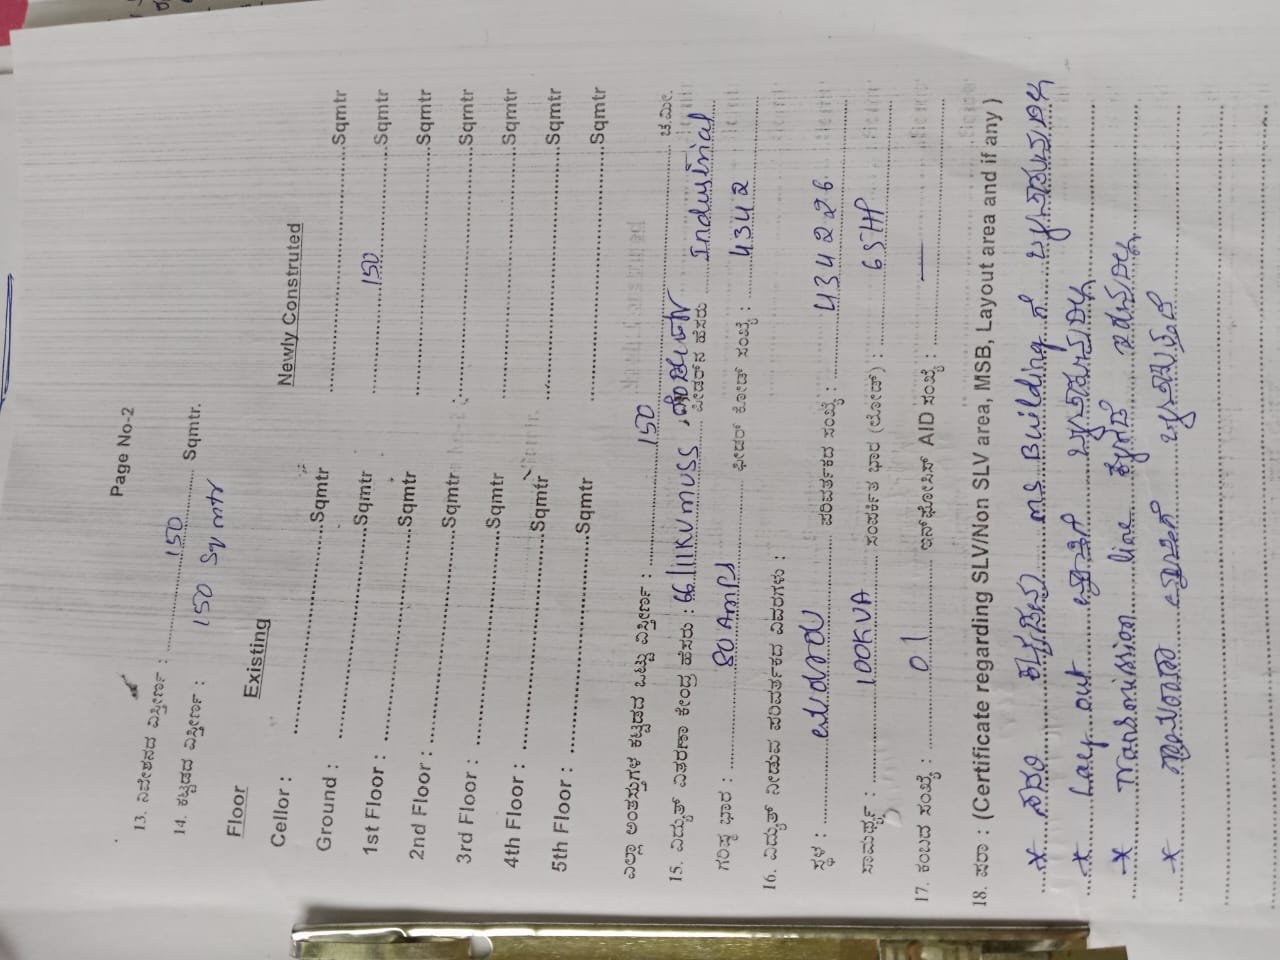 Page No-2
13. ನಿವೇಶನದ ವಿಸ್ತೀರ್ಣ : 150 Sqmtr.
14. ಕಟ್ಟಡದ ವಿಸ್ತೀರ್ಣ : 150 Sqmtr
Floor Existing Newly Construted
Cellor : Sqmtr Sqmtr
Ground : Sqmtr 150 Sqmtr
1st Floor : Sqmtr Sqmtr
2nd Floor : Sqmtr Sqmtr
3rd Floor : Sqmtr Sqmtr
4th Floor : Sqmtr Sqmtr
5th Floor : Sqmtr Sqmtr
ಎಲ್ಲಾ ಅಂತಸ್ತುಗಳ ಕಟ್ಟಡದ ಒಟ್ಟು ವಿಸ್ತೀರ್ಣ : 150 ಚ.ಮೀ.
15. ವಿದ್ಯುತ್ ವಿತರಣಾ ಕೇಂದ್ರ ಹೆಸರು : 66/11KV MUSS ಫೀಡರ್‌ನ ಹೆಸರು Industrial
ಗರಿಷ್ಠ ಭಾರ : 80 Amps ಫೀಡರ್ ಕೋಡ್ ಸಂಖ್ಯೆ : 4342
16. ವಿದ್ಯುತ್ ನೀಡುವ ಪರಿವರ್ತಕದ ವಿವರಗಳು :
ಸ್ಥಳ : ಪರಿವರ್ತಕದ ಸಂಖ್ಯೆ : 434226
ಸಾಮರ್ಥ್ಯ : 100KVA ಸಂಪರ್ಕಿತ ಭಾರ (ಲೋಡ್) : 65HP
17. ಕಂಬದ ಸಂಖ್ಯೆ : 01 ಇನ್‌ಫೋಸಿಸ್ AID ಸಂಖ್ಯೆ : —
18. ಷರಾ : (Certificate regarding SLV/Non SLV area, MSB, Layout area and if any )
* ಸದರಿ ಕಟ್ಟಡವು MS Building ಗೆ
* Lay out ವ್ಯಾಪ್ತಿಗೆ
* Transmission line ಕೆಳಗಡೆ
* ಗ್ರಾಮಠಾಣಾ ವ್ಯಾಪ್ತಿಗೆ